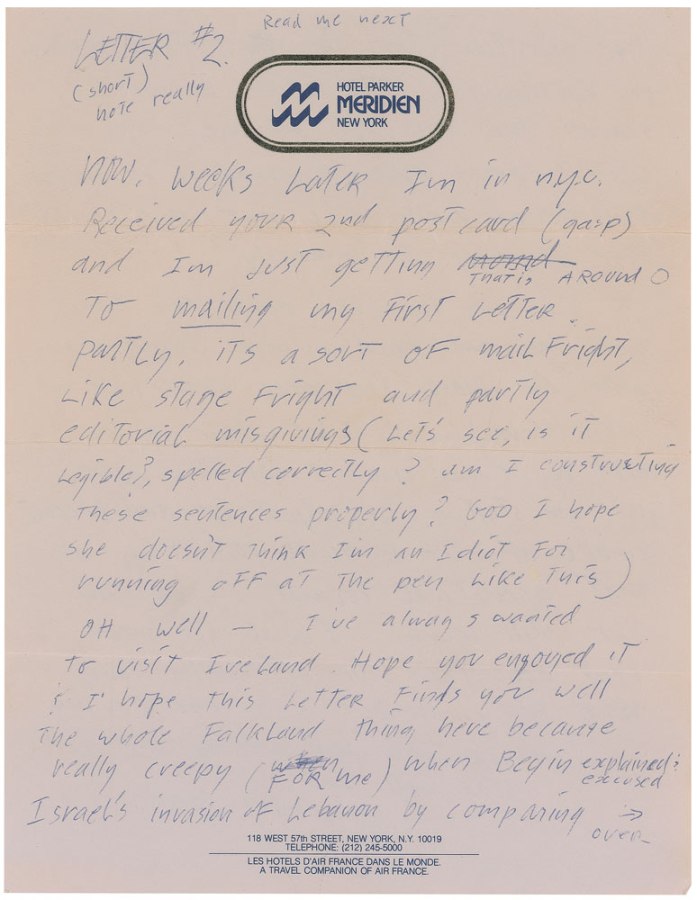 Read me next
LETTER #2
(short)
note really
HOTEL PARKER
MERIDIEN
NEW YORK
NOW, weeks Later Im in n.y.c.
Received your 2nd post card (gasp)
and Im just getting
That is AROUND
To mailing my First Letter.
partly, its a sort OF mail Fright,
Like stage Fright and partly
editorial misgivings (Let's see, is it
Legible?, spelled correctly? am I constructing
These sentences properly? God I hope
she doesn't Think I'm an Idiot For
running off at The pen Like This)
OH well — I've always wanted
To visit Ireland. Hope you engoyed it
& I hope this Letter Finds you well
The whole Falkland Thing here became
really creepy (when, when Begin explained &
FOR me) excused
Israel's invasion of Lebanon by comparing →
over—
118 WEST 57th STREET, NEW YORK, N.Y. 10019
TELEPHONE: (212) 245-5000
LES HOTELS D'AIR FRANCE DANS LE MONDE.
A TRAVEL COMPANION OF AIR FRANCE.